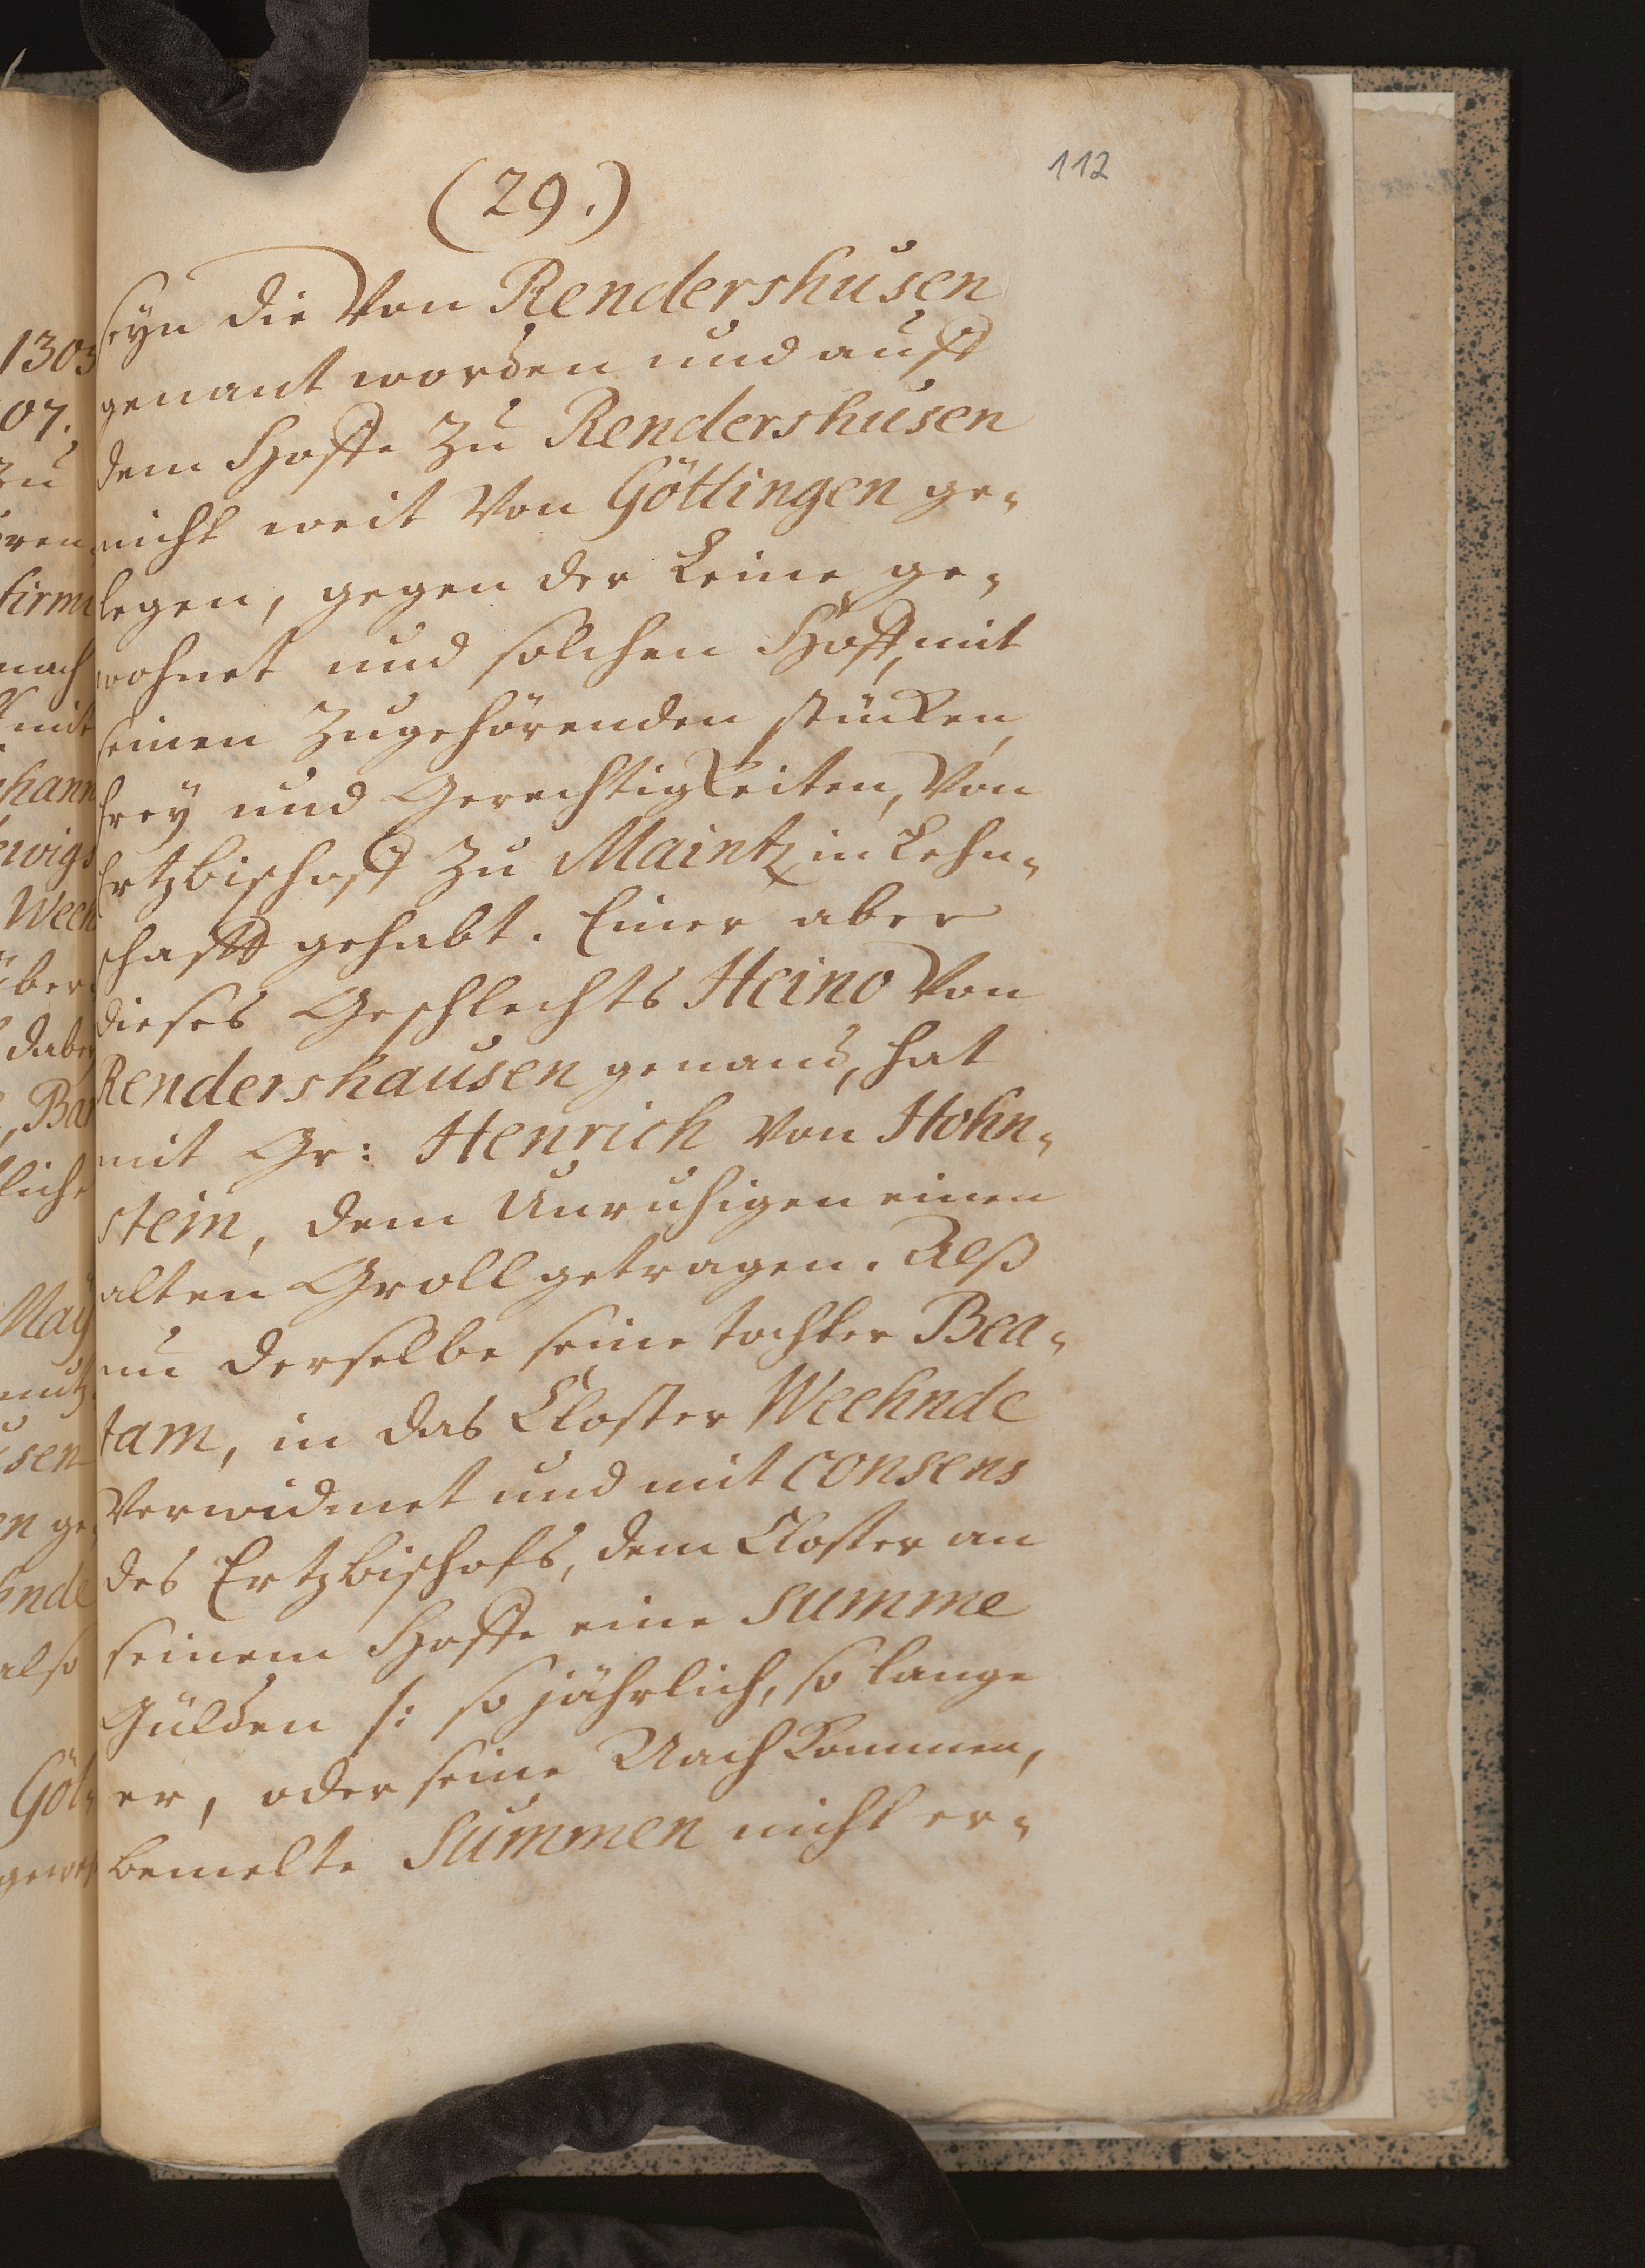 112
(29.)
seyn die von Rendershusen
genant worden und auff
dem Hoffe zu Rendershusen
nicht weit von Göttingen ge-
legen, gegen der Leine ge-
wohnet und solchen Hoff, mit
seinen zugehörenden stücken,
frey und Gerechtigkeiten, von
Ertzbischoff zu Maintz in Lehn-
schafft gehabt. Einer aber
dieses Geschlechts Heino von
Rendershausen genand, hat
mit Gr: Henrich von Hohn-
stein, dem Unruhigen einen
alten Groll getragen. Alß
nu derselbe seine tochter Bea-
tam, in das Closter Weehnde
verwidmet und mit consens
des Ertzbischofs, dem Closter an
seinem Hoffe eine summe
Gülden /: so jährlich, so lange
er, oder seine Nachkommen,
bemelte Summen nicht er-